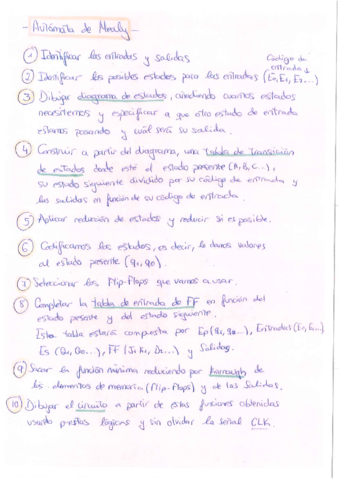 - Autómata de Mealy -
① Identificar las entradas y salidas
Código de entrada ↓
② Identificar los posibles estados para las entradas (E₀, E₁, E₂...)
③ Dibujar diagrama de estados, añadiendo cuantos estados
necesitemos y especificar a que otro estado de entrada
estamos pasando y cuál será su salida.
④ Construir a partir del diagrama, una tabla de transición
de estados donde esté el estado presente (A, B, C...),
su estado siguiente dividido por su código de entrada y
las salidas en función de su código de entrada.
⑤ Aplicar reducción de estados y reducir si es posible.
⑥ Codificamos los estados, es decir, le damos valores
al estado presente (q₁, q₀).
⑦ Seleccionar los Flip-Flops que vamos a usar.
⑧ Completar la tabla de entrada de FF en función del
estado presente y del estado siguiente.
Esta tabla estará compuesta por Ep (q₁, q₀...), Entradas (E₁, E₀...)
Es (Q₁, Q₀...), FF (J₁ K₁, D₁...) y Salidas.
⑨ Sacar la función mínima reduciendo por Karnaugh de
los elementos de memoria (Flip-Flops) y de las Salidas.
⑩ Dibujar el circuito a partir de estas funciones obtenidas
usando puertas lógicas y sin olvidar la señal CLK.